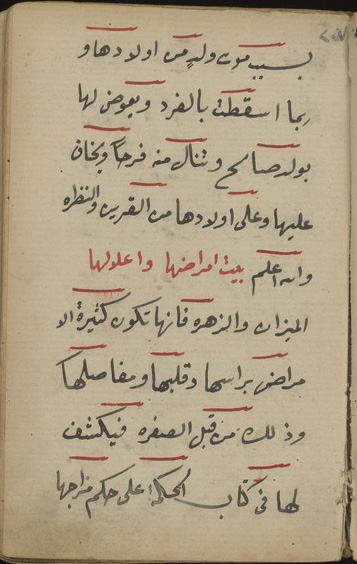 بسبب موت ولدٍ من اولادها و
ربما اسقطت بالفرد ويعوض لها
بولد صالح وتنال منه فرحاً ويخاف
عليها وعلى اولادها من القرين والنظره
والله اعلم بيت امراضها واعلولها
الميزان والزهره فانها تكون كثيرة الا
مراض براسها وقلبها ومفاصلها
وذلك من قبل الصفره فيكشف
لها في كتاب الحكمة على حكم مزاجها